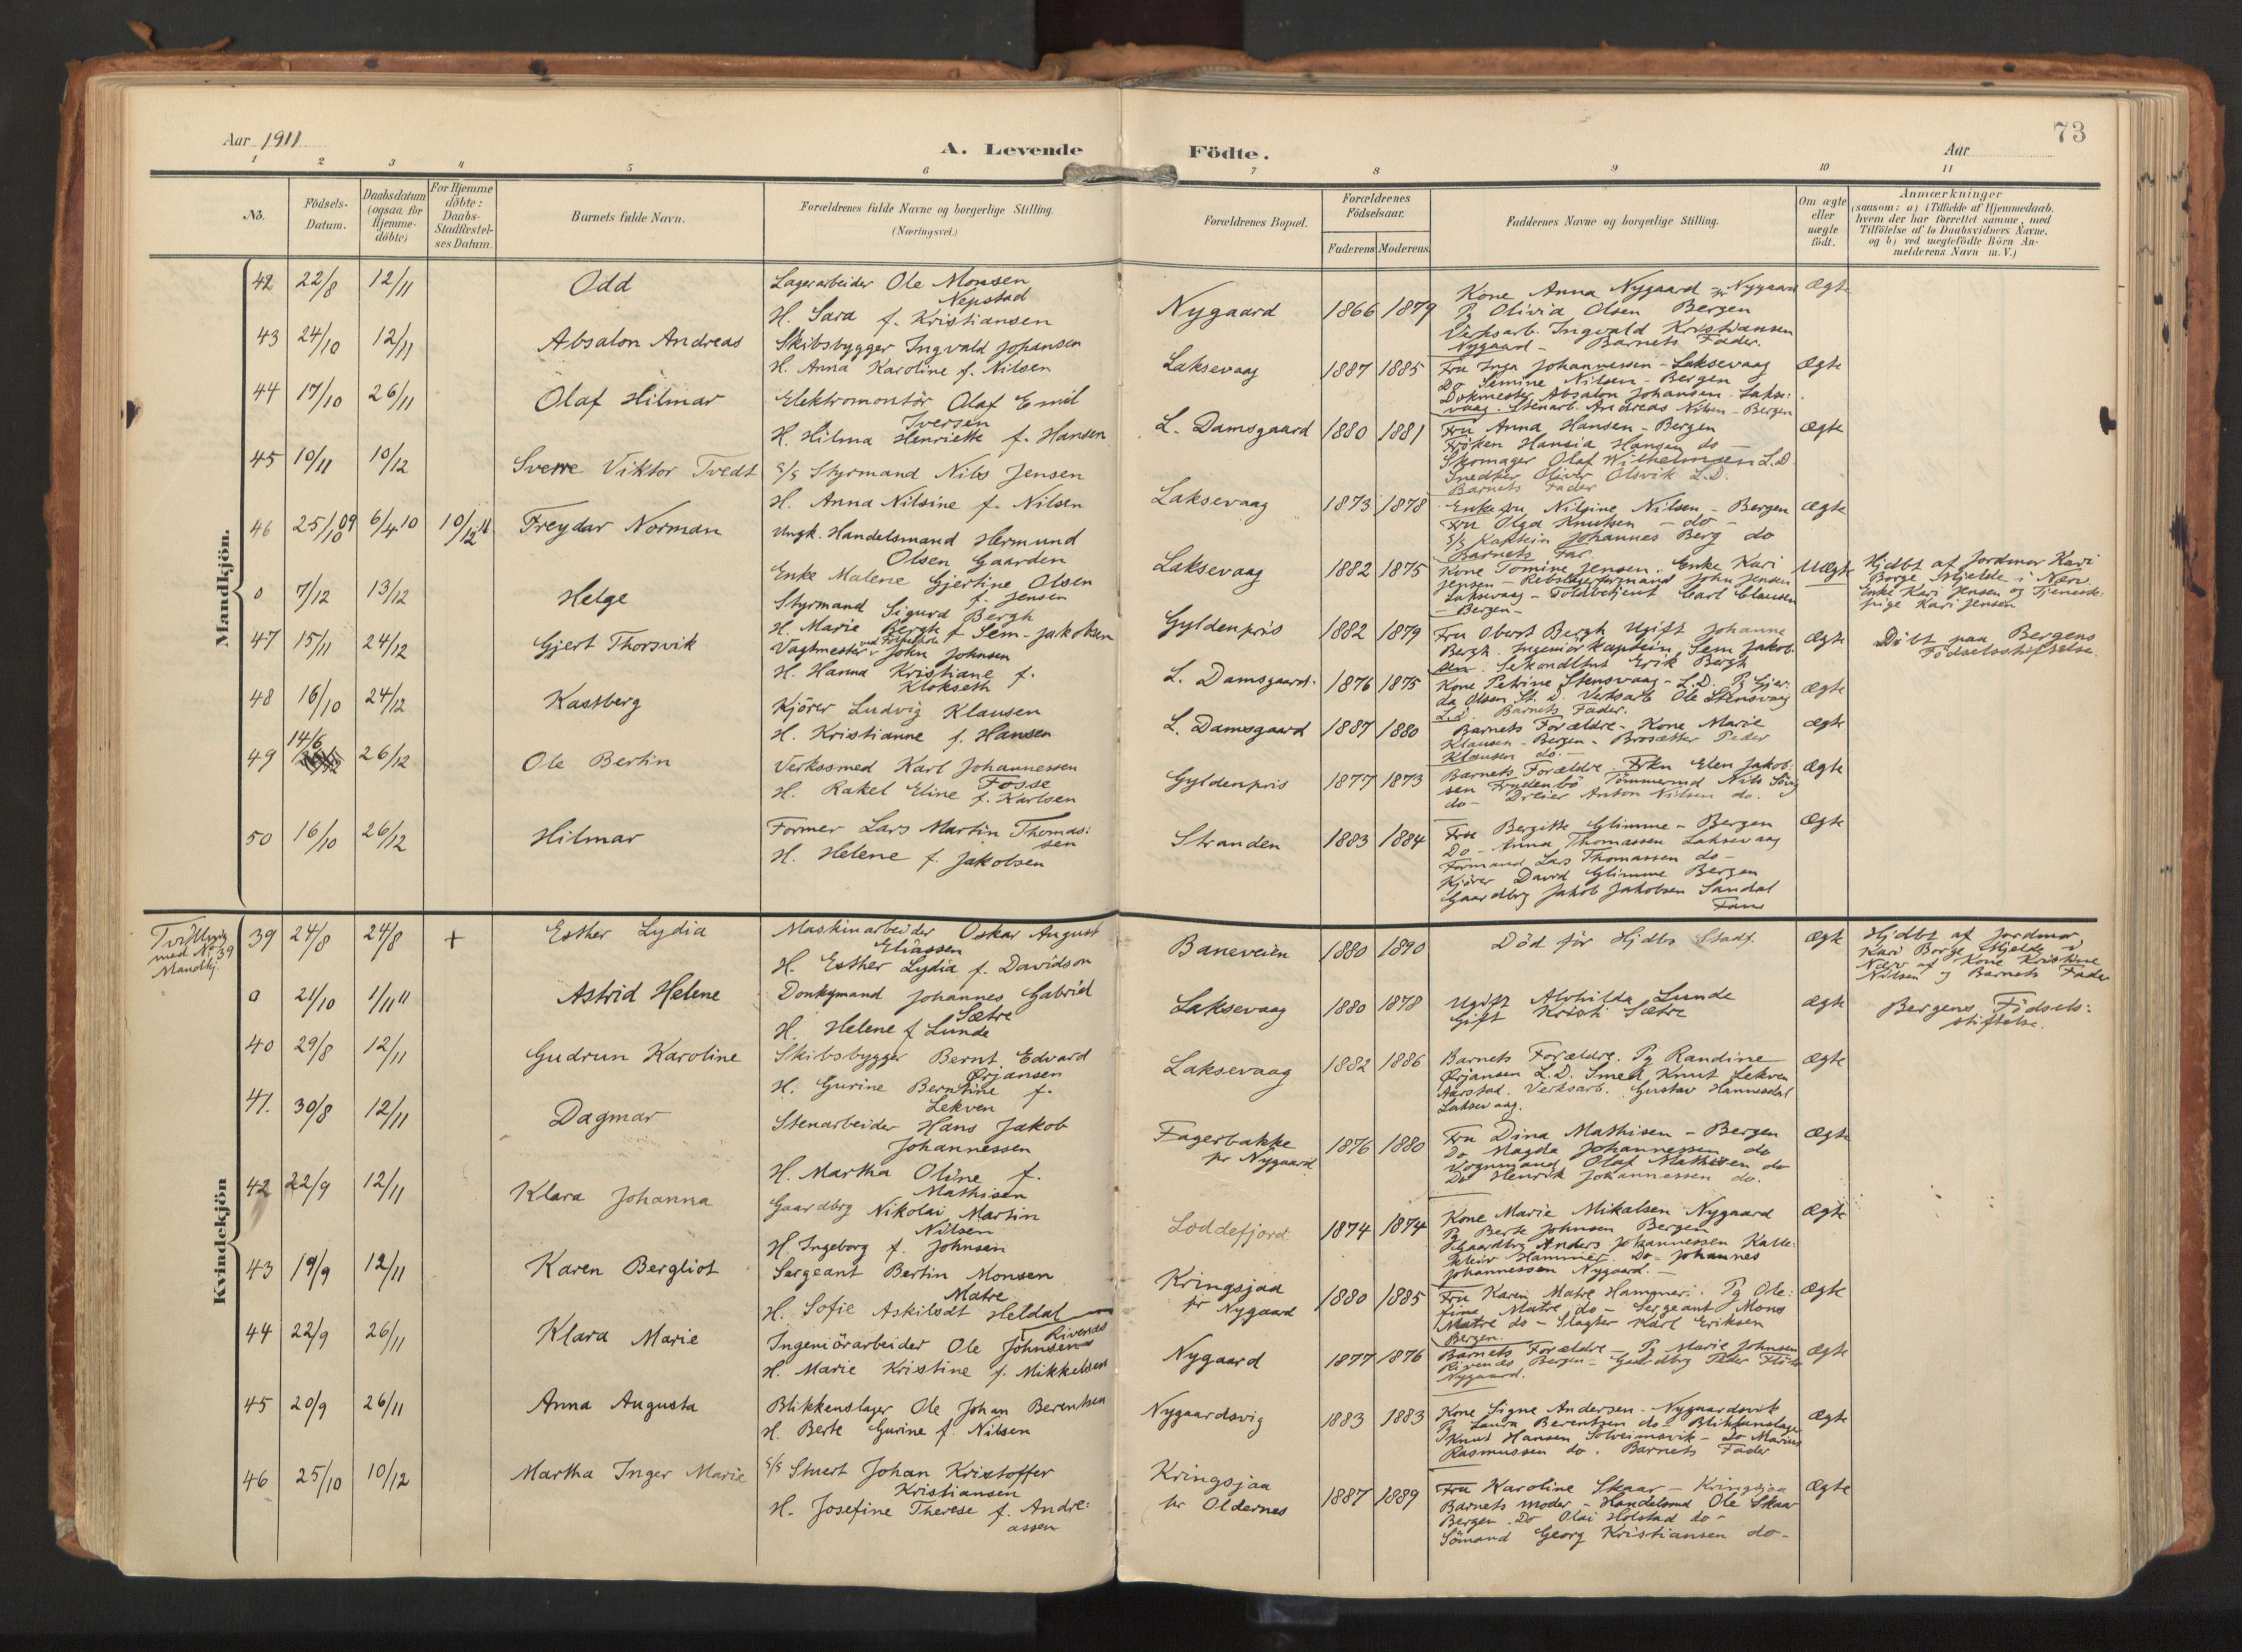 Aar 1911
A. Levende
Födte.
Aar
73
1 2 3 4 5 6 7 8 9 10 11
No.
Födsels-Datum.
Daabsdatum (ogsaa for Hjemme-döbte)
For Hjemme döbte: Daabs-Stadfæstel-ses Datum.
Barnets fulde Navn.
Forældrenes fulde Navne og borgerlige Stilling.
(Næringsvei.)
Forældrenes Bopæl.
Forældrenes Födselsaar.
Faderens Moderens
Faddernes Navne og borgerlige Stilling.
Om ægte eller uægte födt.
Anmærkninger
(saasom: a) i Tilfælde af Hjemmedaab,
hvem der har forrettet samme, med
Tilföielse af to Daabsvidners Navne,
og b) ved uægtefödte Börn An-
melderens Navn m.V.)
Mandkjön.
42 22/8 12/11 Odd
Lagerarbeider Ole Monsen
Nepstad
H. Sara f. Kristiansen
Nygaard 1866 1879
Kone Anna Nygaard pr Nygaard
Pg Olivia Olsen Bergen
Verksarb. Ingvald Kristiansen
Nygaard - Barnets Fader.
Ægte
43 24/10 12/11 Absalon Andreas
Skibsbygger Ingvald Johansen
H. Anna Karoline f. Nilsen
Laksevaag 1887 1885
Fru Inga Johannessen - Laksevaag
Do Semine Nilsen - Bergen
Dokmester Absalon Johansen - Lakse:
vaag. Stenarb. Andreas Nilsen - Bergen
Ægte
44 17/10 26/11 Olaf Hilmar
Elektromontör Olaf Emil
Iversen
H. Hilma Henriette f. Hansen
L. Damsgaard 1880 1881
Fru Anna Hansen - Bergen
Fröken Hansia Hansen do -
Skomager Olaf Wilhelmsen L.D.
Snedker Oliver Olsvik L.D.
Barnets Fader
Ægte
45 10/11 10/12 Sverre Viktor Tvedt
s/s Styrmand Nils Jensen
H. Anna Nilsine f. Nilsen
Laksevaag 1873 1878
Enkefru Nilsine Nilsen - Bergen
Fru Olga Knutsen - do -
s/s Kaptein Johannes Berg do
Barnets Far.
Ægte
46 25/10 09 6/4 10 10/12 11 Freydar Norman
Ungk. Handelsmand Hermund
Olsen Gaarden
Enke Malene Gjertine Olsen
f. Jensen
Laksevaag 1882 1875
Kone Tomine Jensen. Enke Kari
Jensen - Rebslagerformand John Jensen
Laksevaag - Toldbetjent Carl Clausen
- Bergen -
Uægte
Hjdbt af Jordmor Kari
Borge Mjelde i Nærv.
Enke Kari Jensen og Tjeneste:
pige Kari Jensen
0 7/12 13/12 Helge
Styrmand Sigurd Bergh
H. Marie Bergh f. Sem-Jakobsen
Gyldenpris 1882 1879
Fru Oberst Bergh Ugift Johanne
Bergh. Ingeniör Kaptein Sem Jakob
sen. Sekondltnt Erik Bergh
Ægte
Döbt paa Bergens
Födselsstiftelse.
47 15/11 24/12 Gjert Thorsvik
Vagtmester John Johnsen
H. Hanna Kristiane f.
Klokseth
L. Damsgaard 1876 1875
Kone Petrine Stensvaag - L.D. Pg Gjer:
da Olsen St. D. Verksarb Ole Stensvaag
L.D. Barnets Fader.
Ægte
48 16/10 24/12 Kastberg
Kjörer Ludvig Klausen
H. Kristianne f. Hansen
L. Damsgaard 1887 1880
Barnets Forældre - Kone Marie
Klausen - Bergen - Brosætter Peder
Klausen do. -
Ægte
49 14/6 26/12 Ole Bertin
Verkssmed Karl Johannessen
Fosse
H. Rakel Eline f. Karlsen
Gyldenpris 1877 1873
Barnets Forældre. Frkn Elen Jakob:
sen Frydenbö Tömmermd Nils
do - Dreier Anton Nilsen do.
Ægte
50 16/10 26/12 Hilmar
Former Lars Martin Thomas:
sen
H. Helene f. Jakobsen
Stranden 1883 1884
Fru Bergitte Glimme - Bergen
Do - Anna Thomassen Laksevaag
Formand Lars Thomassen do -
Kjörer David Glimme Bergen
Gaardbrg Jakob Jakobsen Sandal
Fane
Ægte
Kvindekjön
Tvilling
med No 39
Mandkj.
39 24/8 24/8 + Esther Lydia
Maskinarbeider Oskar August
Eliassen
H. Esther Lydia f. Davidson
Baneveien 1880 1890
Död för Hjdbs Stadf.
Ægte
Hjdbt af Jordmor
Kari Borge Mjelde i
Nærv af Kone Kristine
Nilsen og Barnets Fader
0 21/10 1/11 11 Astrid Helene
Donkymand Johannes Gabriel
Sætre
H. Helene f. Lunde
Laksevaag 1880 1878
Ugift Alvhilda Lunde
Gift Kristi Sætre
Ægte
Bergens Födsels:
stiftelse.
40 29/8 12/11 Gudrun Karoline
Skibsbygger Bernt Edvard
Ørjansen
H. Gurine Berntine f.
Lekven
Laksevaag 1882 1886
Barnets Forældre. Pg Randine
Ørjansen L.D. Smed Knut Lekven
Aarstad. Verksarb. Gustav Hannesdal
Laksevaag.
Ægte
41. 30/8 12/11 Dagmar
Stenarbeider Hans Jakob
Johannessen
H. Martha Oline f.
Mathisen
Fagerbakke
pr Nygaard
1876 1880
Fru Dina Mathisen - Bergen
Do Magda Johannessen do
Vognmand Olaf Mathisen do
Do Henrik Johannessen do.
Ægte
42 22/9 12/11 Klara Johanna
Gaardbrg Nikolai Martin
Nilsen
H. Ingeborg f. Johnsen
Loddefjord 1874 1874
Kone Marie Mikalsen Nygaard
Pg Berte Johnsen Bergen
Gaardbrg Anders Johannessen Katte:
Hammer Do - Johannes
Johannessen Nygaard. -
Ægte
43 19/9 12/11 Karen Bergliot
Sergeant Bertin Monsen
Matre
H. Sofie Askilsdt Heldal
Kringsjaa
pr Nygaard
1880 1885
Fru Karen Matre Hamner. Pg Ole:
fine Matre do - Sergeant Mons
Matre do - Slagter Karl Eriksen
Bergen.
Ægte
44 22/9 26/11 Klara Marie
Ingeniörarbeider Ole Johnsen
Rivenes
H. Marie Kristine f. Mikkelsen
Nygaard 1877 1876
Barnets Forældre - Pg Marie Johnsen
Rivenes Bergen - Gaardbrg Peder
Nygaard.
Ægte
45 20/9 26/11 Anna Augusta
Blikkenslager Ole Johan Berentsen
H. Berte Gurine f. Nilsen
Nygaardsvig 1883 1883
Kone Signe Andersen - Nygaardsvik
Pg Laura Berentsen do - Blikkenslager
Knut Hansen Solheimsvik - do Marius
Rasmussen do. Barnets Fader
Ægte
46 25/10 10/12 Martha Inger Marie
s/s Stuert Johan Kristoffer
Kristiansen
H. Josefine Therese f. Andre:
assen
Kringsjaa
pr Oldernes
1887 1889
Fru Karoline Skaar - Kringsjaa
Barnets moder - Handelsmd Ole Skaar
Bergen. Do Olai Holstad do -
Sömand Georg Kristiansen do -
Ægte